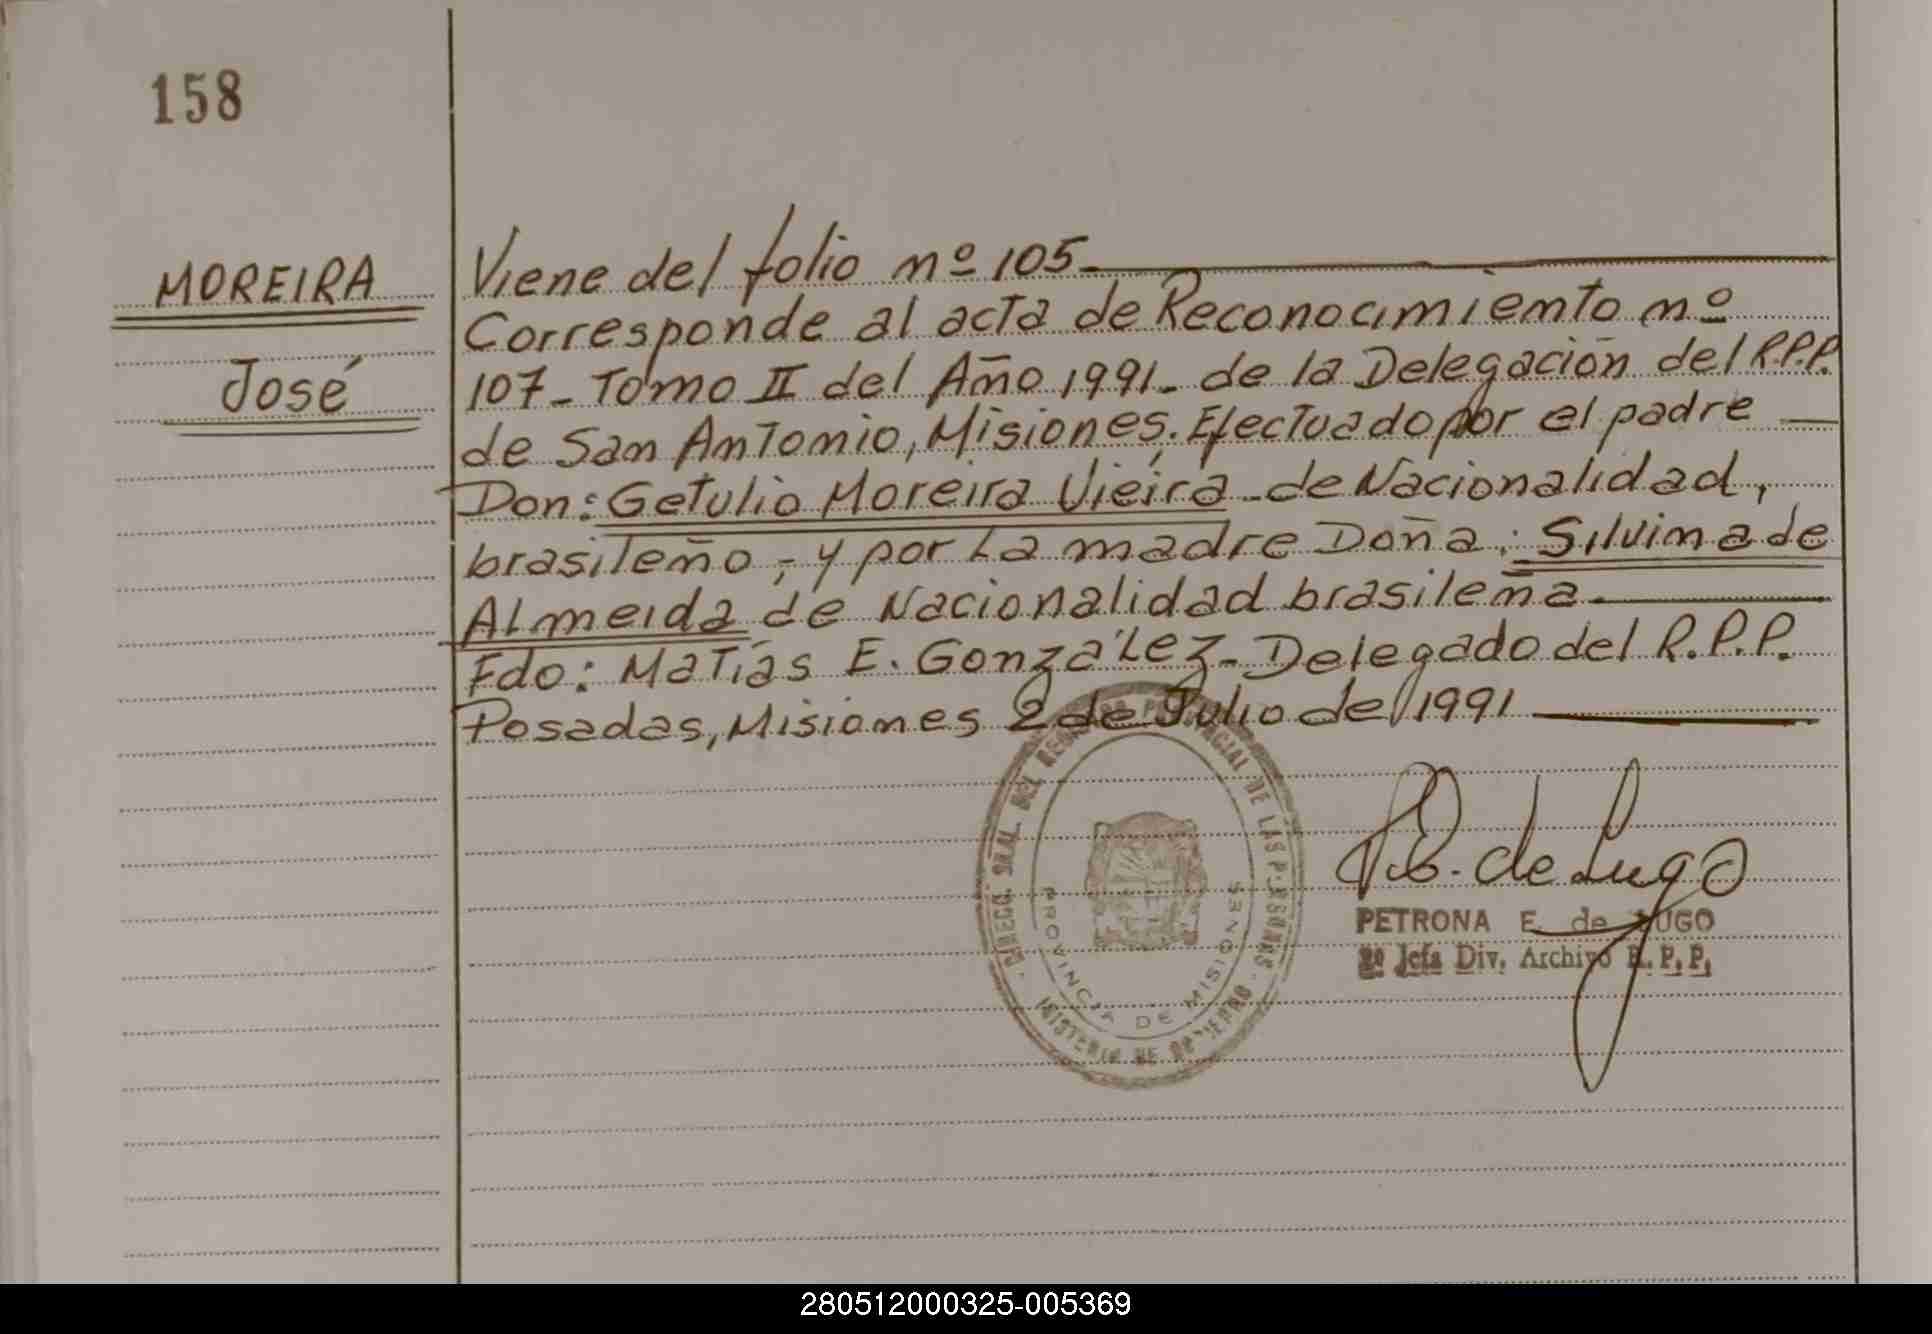 158
MOREIRA
José
Viene del folio nº 105-
Corresponde al acta de Reconocimiento nº
107- Tomo II del Año 1991- de la Delegación del R.P.P.
de San Antonio, Misiones. Efectuado por el padre
Don: Getulio Moreira Vieira - de Nacionalidad,
brasileño, y por La madre Doña: Silvina de
Almeida de Nacionalidad brasileña.
Fdo: Matías E. González - Delegado del R.P.P.
Posadas, Misiones 2 de Julio de 1991
DIRECC. GRAL. DEL REGISTRO PROVINCIAL DE LAS PERSONAS
MINISTERIO DE GOBIERNO
PROVINCIA DE MISIONES
P.E. de Lugo
PETRONA E. de LUGO
2º Jefa Div. Archivo R. P. P.
280512000325-005369